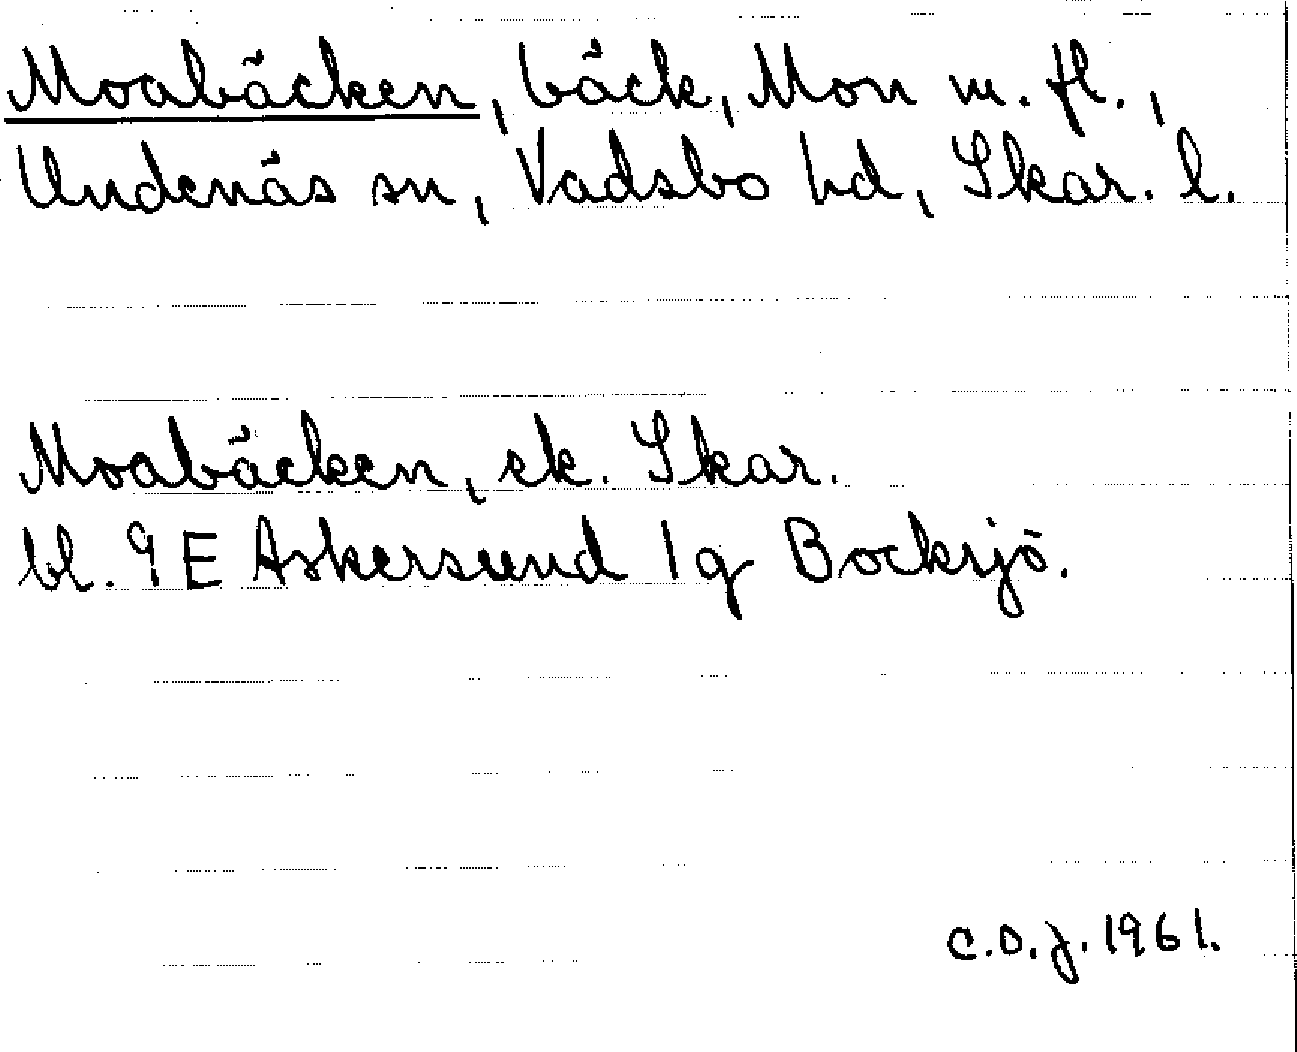 Moabäcken, bäck, Mon m. fl.,
Undenäs sn, Vadsbo hd, Skar. l.
Moabäcken, ek. Skar.
bl. 9 E Askersund 1g Bocksjö.
C.O.J. 1961.